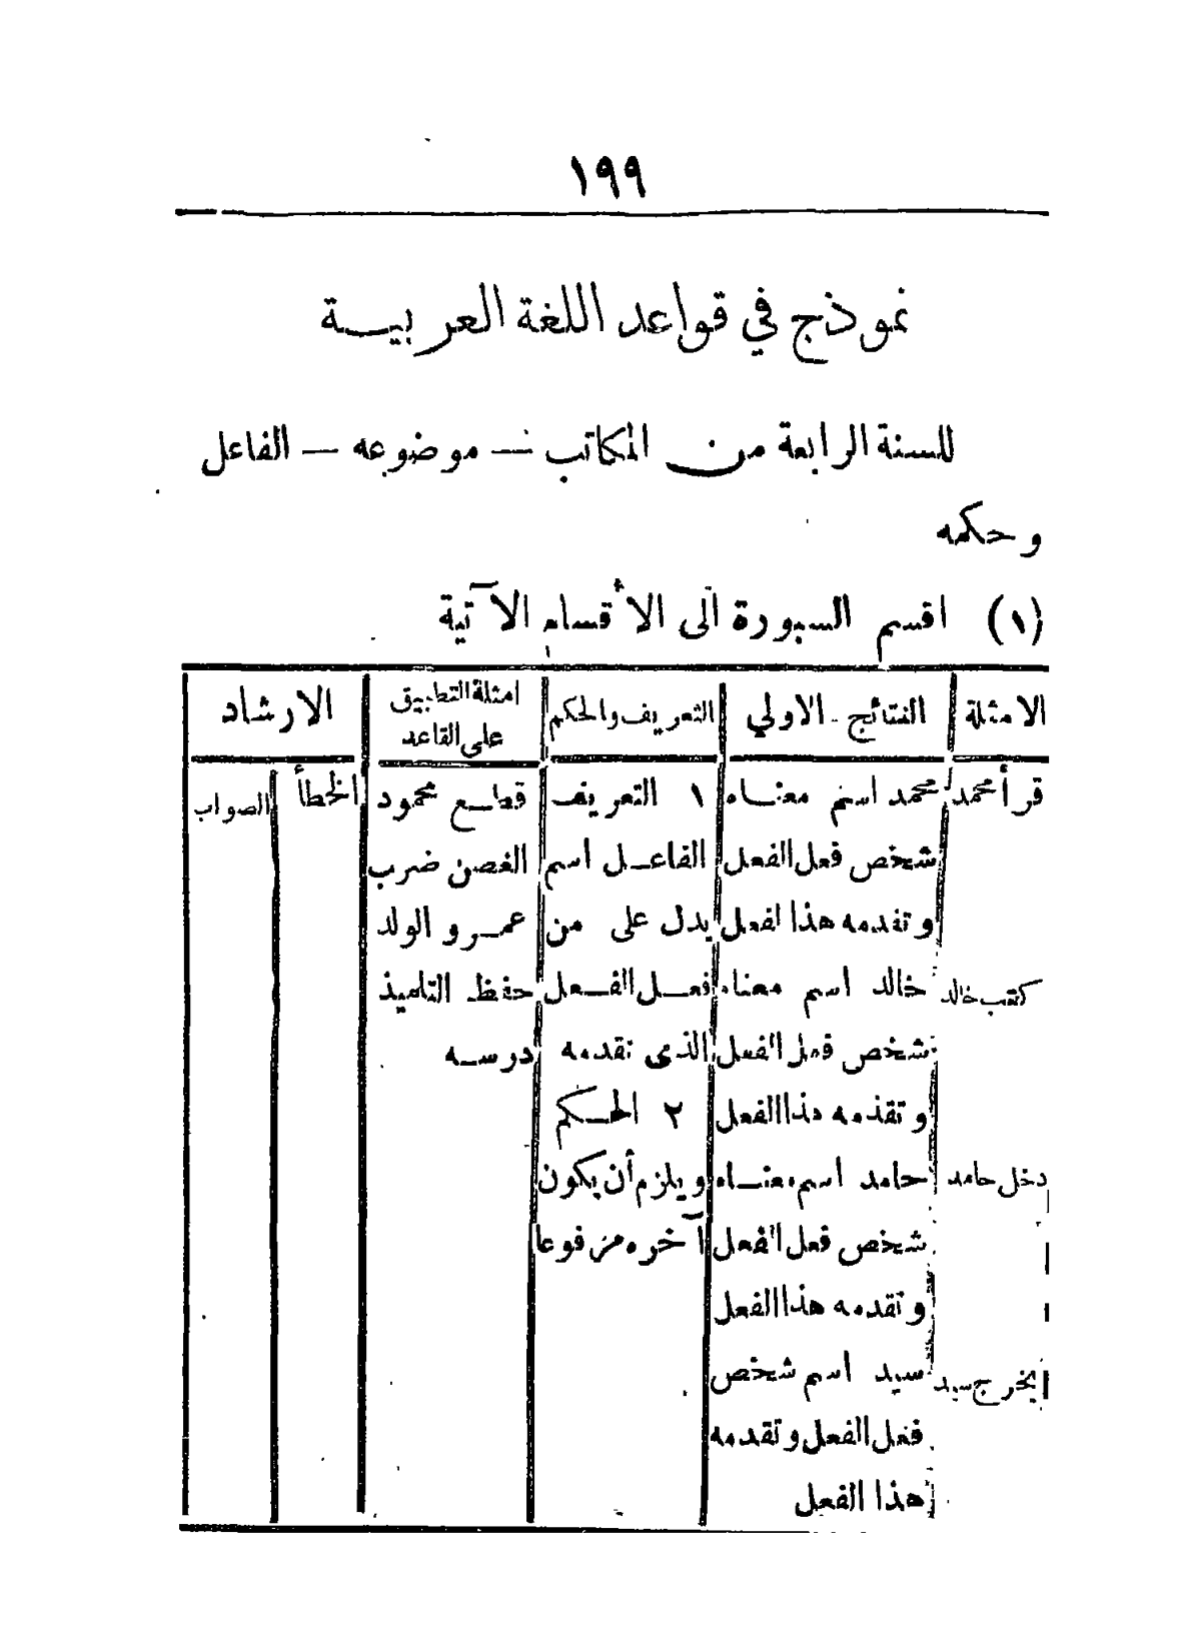 ١٩٩
نموذج في قواعد اللغة العربيـة
للسنة الرابعة من المكاتب — موضوعه — الفاعل
وحكمه
(١) اقسم السبورة الى الأقسام الآتية
الامثلة النتائج الاولي التعريف والحكم امثلة التطبيق الارشاد
على القاعد
قرأ محمد محمد اسم معناه ١ التعريف قطع محمود الخطأ الصواب
شخص فعل الفعل الفاعل اسم الغصن ضرب
وتقدمه هذا الفعل يدل على من عمرو الولد
كتب خالد خالد اسم معناه فعل الفعل حفظ التلميذ
شخص فعل الفعل الذى تقدمه درسه
وتقدمه هذا الفعل ٢ الحكم
دخل حامد حامد اسم معناه ويلزم أن يكون
شخص فعل الفعل آخره مرفوعا
وتقدمه هذا الفعل
يخرج سيد سيد اسم شخص
فعل الفعل وتقدمه
هذا الفعل